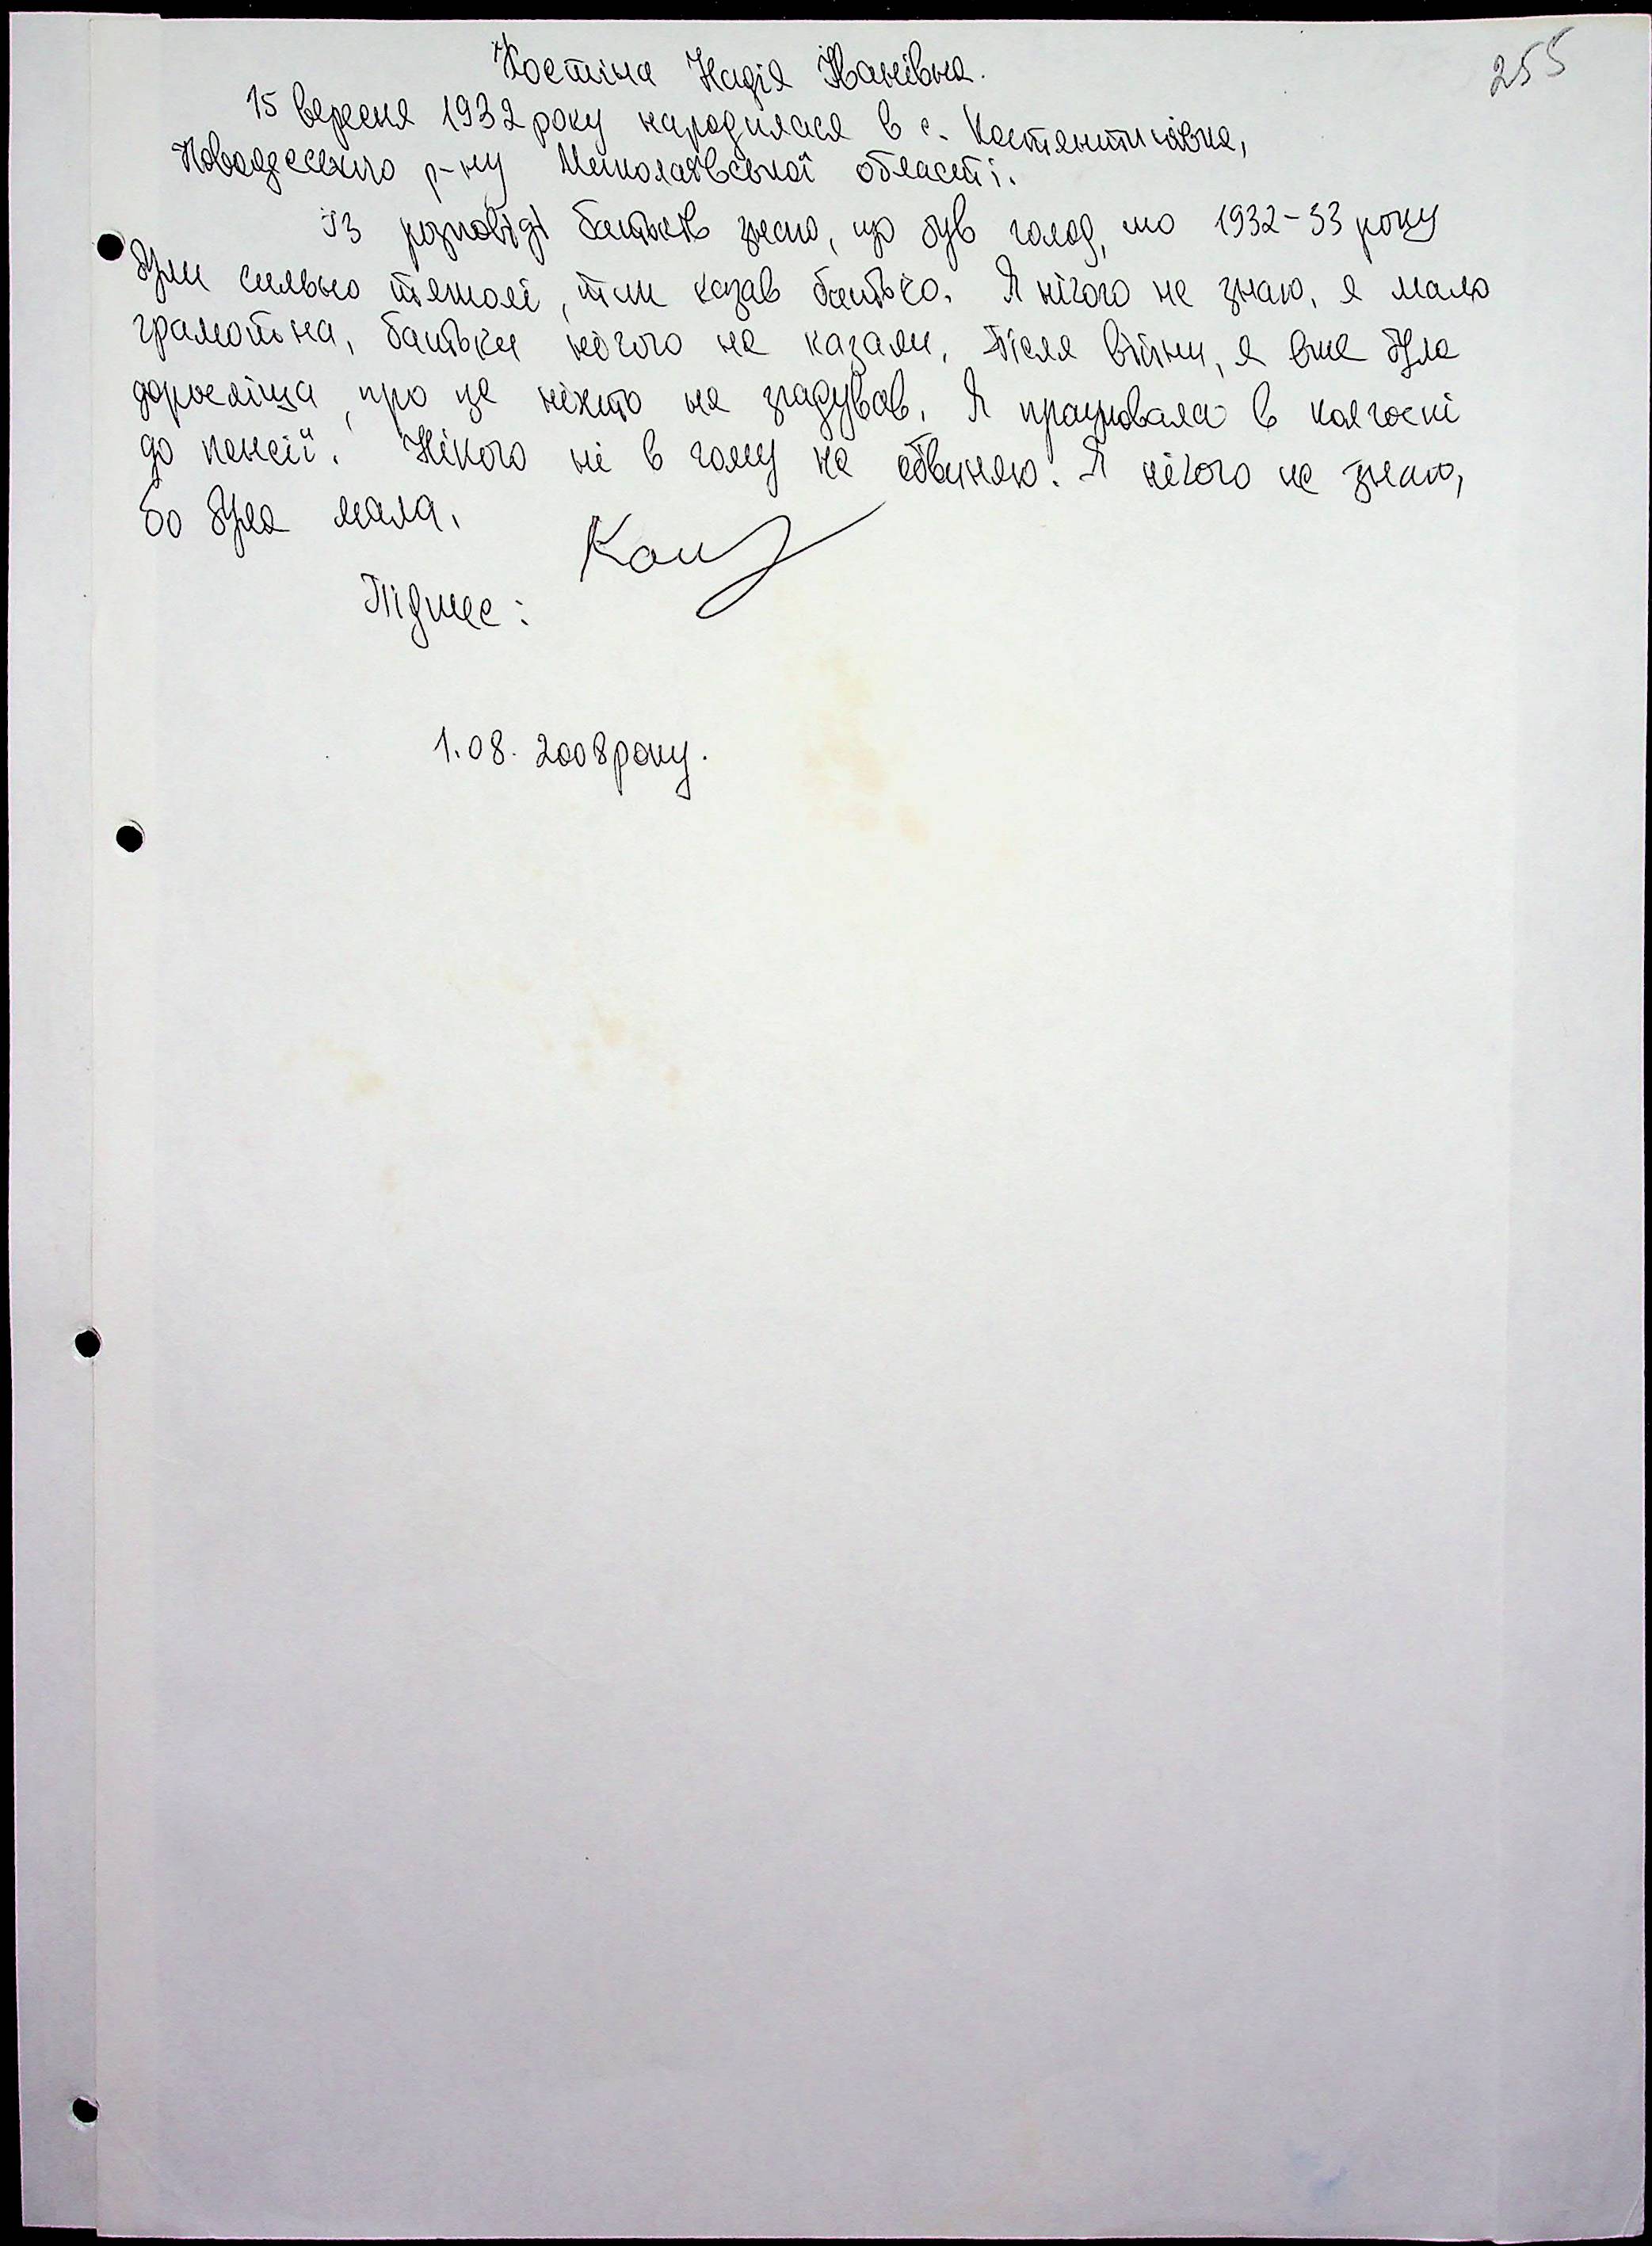 255
Костіна Надія Іванівна.
15 вересня 1932 року народилася в с. Костянтинівка,
Новоодеського р-ну Миколаївської області.
Із розповіді батьків знаю, що був голод, що 1932-33 року
були сильно тяжолі, так казав батько. Я нічого не знаю, я мало
грамотна, батьки нічого не казали. Після війни, я вже була
доросліша, про це ніхто не згадував. Я працювала в колгоспі
до пенсії. Нікого ні в чому не обвиняю. Я нічого не знаю,
бо була мала.
Підпис:
1.08. 2008 року.